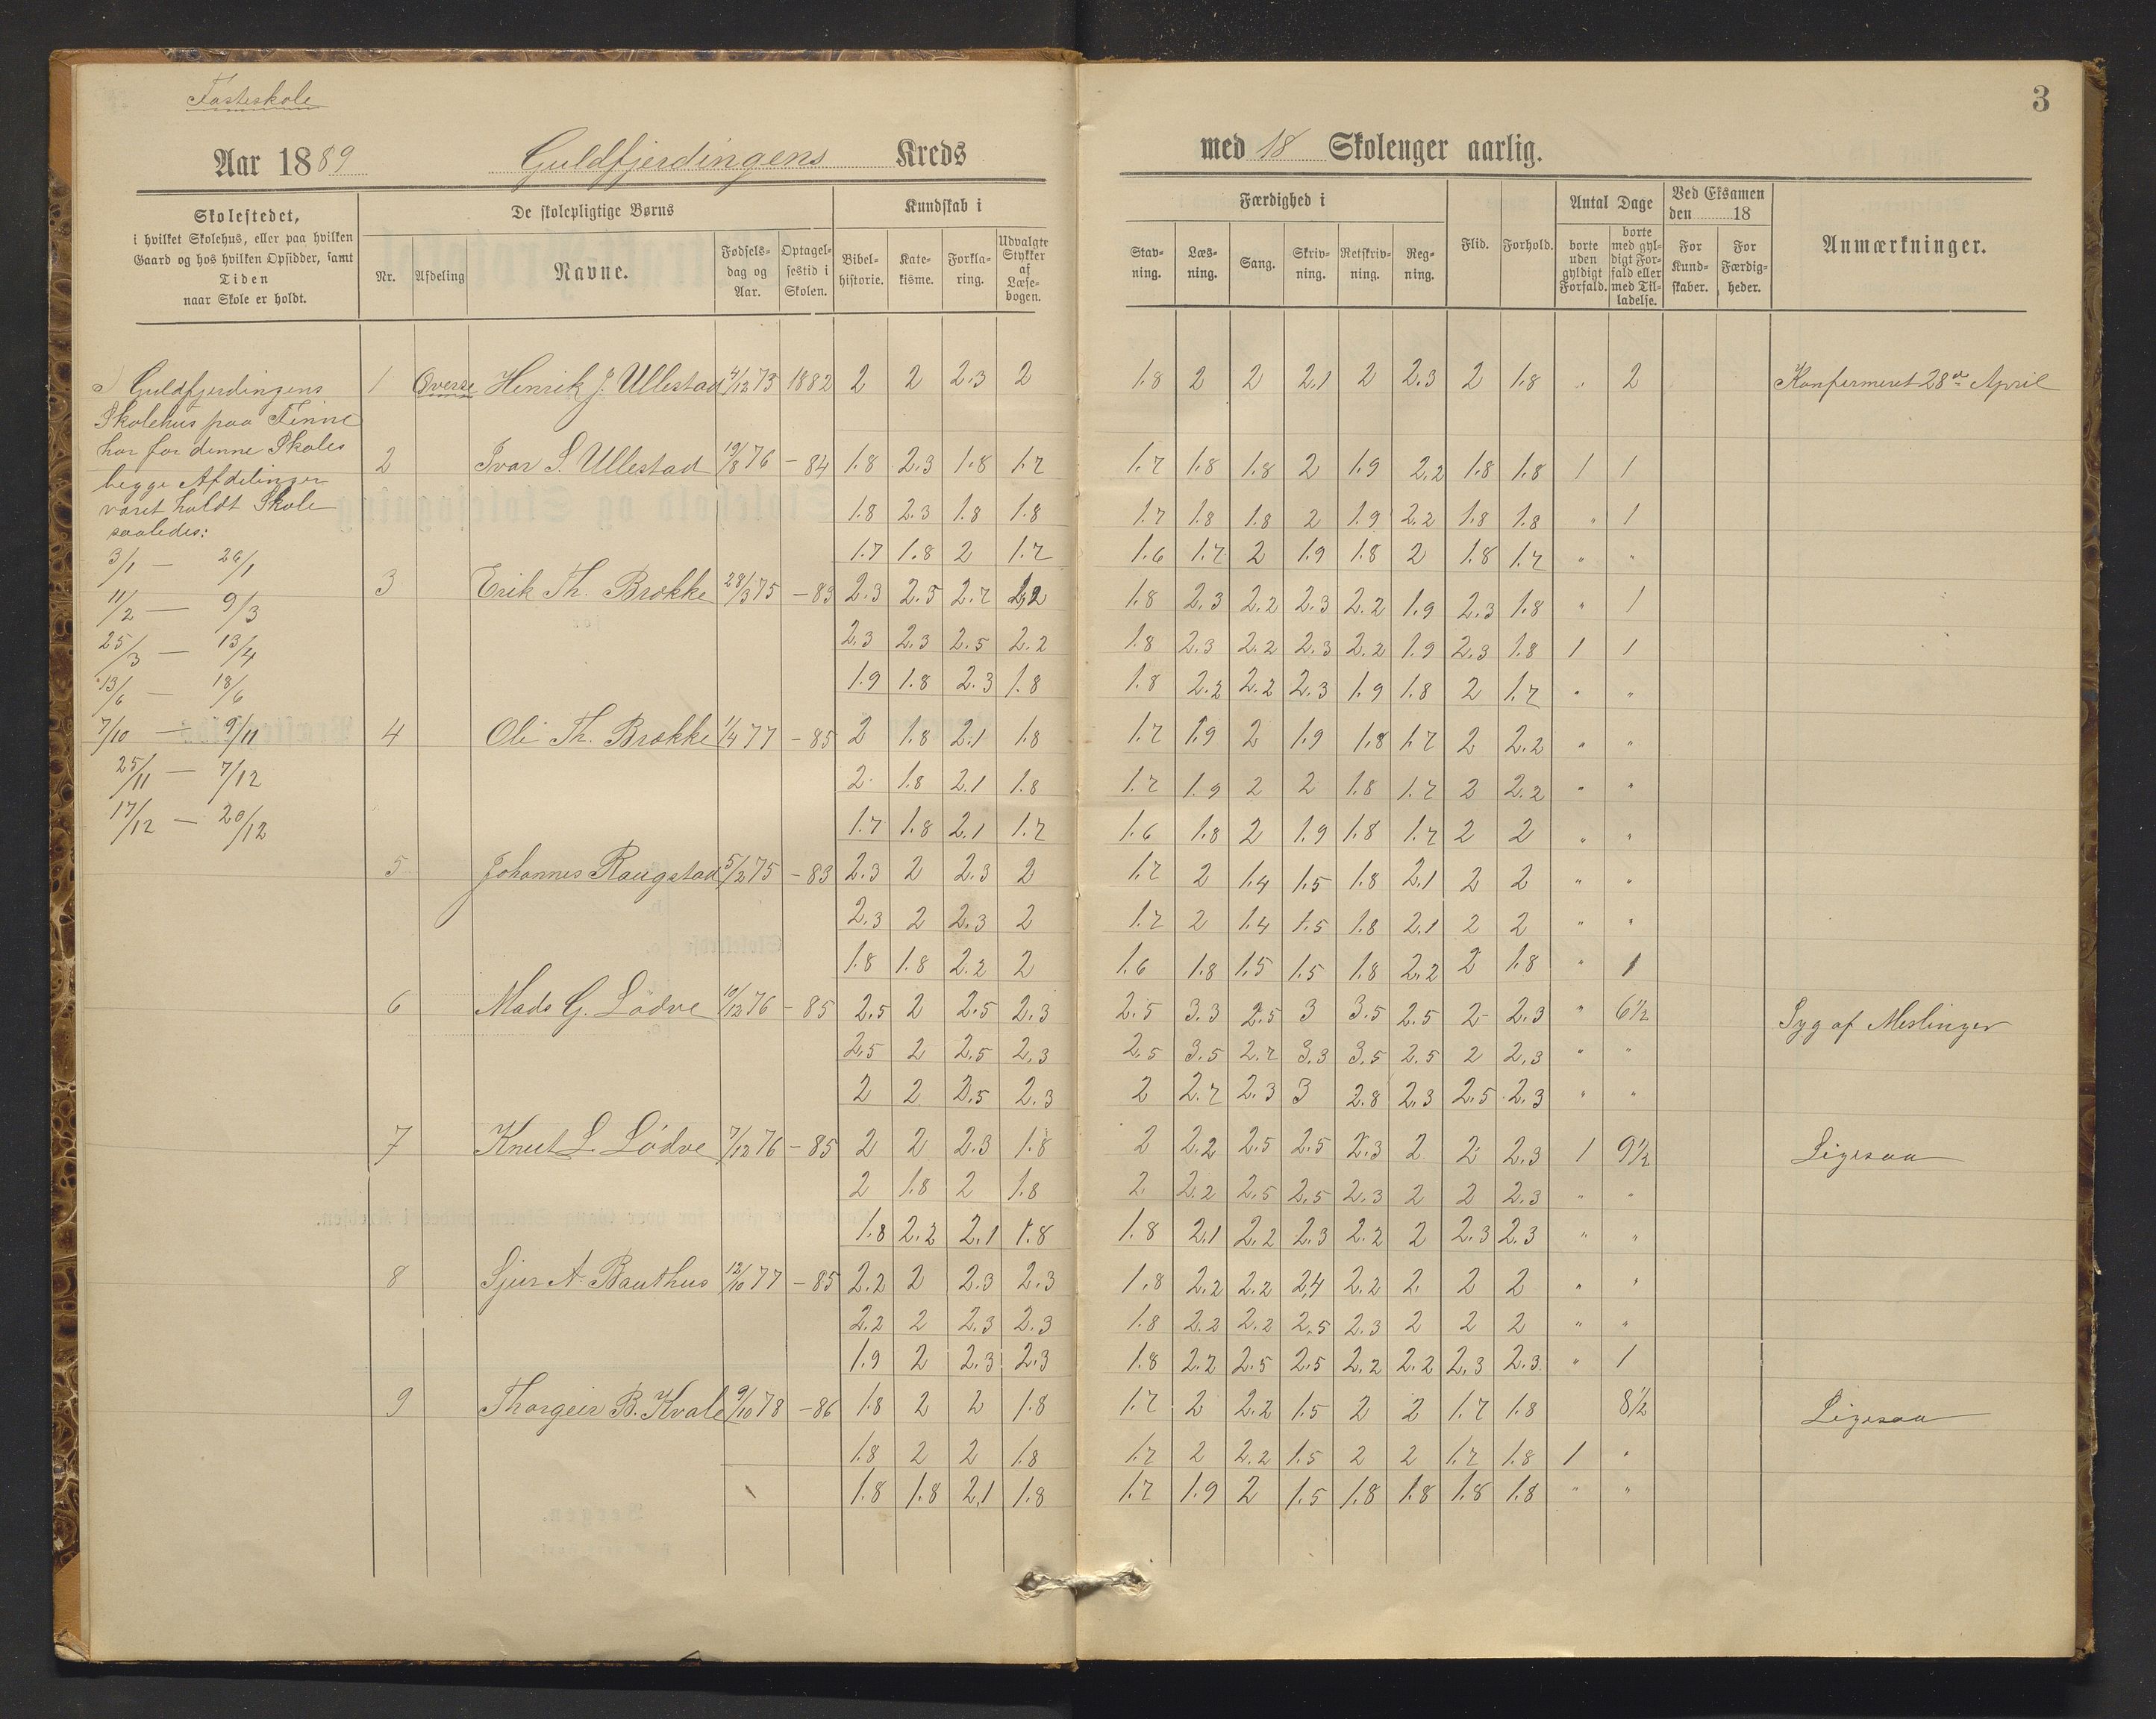 Fasteskole
Aar 1889 Guldfjerdingens Kreds
Skolestedet,
i hvilket Skolehus, eller paa hvilken
Gaard og hos hvilken Opsidder, samt
Tiden
naar Skole er holdt.
De skolepligtige Børns
Nr. Afdeling Navne. Fødselsdag og Aar. Optagelsestid i Skolen.
Kundskab i
Bibelhistorie. Katekisme. Forklaring. Udvalgte Stykker af Læsebogen.
I Guldfjerdingens
Skolehus paa Finne
har for denne Skoles
begge Afdelinger
været holdt Skole
saaledes:
3/1 — 26/1
11/2 — 9/3
25/3 — 13/4
13/6 — 18/6
7/10 — 9/11
25/11 — 7/12
17/12 — 20/12
1 Øverse Henrik J. Ullestad 4/12 73 1882 2 2 2.3 2
2 Ivar S. Ullestad 19/8 76 – 84 1.8 2.3 1.8 1.7
1.8 2.3 1.8 1.8
1.7 1.8 2 1.7
3 Erik Th. Brække 28/3 75 – 83 2.3 2.5 2.7 2.2
2.3 2.3 2.5 2.2
1.9 1.8 2.3 1.8
4 Ole Th. Brække 1/4 77 – 85 2 1.8 2.1 1.8
2 1.8 2.1 1.8
1.7 1.8 2.1 1.7
5 Johannes Raugstad 5/2 75 – 83 2.3 2 2.3 2
2.3 2 2.3 2
1.8 1.8 2.2 2
6 Mads G. Lødve 10/12 76 – 85 2.5 2 2.5 2.3
2.5 2 2.5 2.3
2 2 2.5 2.3
7 Knut L. Lødve 7/12 76 – 85 2 2 2.3 1.8
2 1.8 2 1.8
1.8 2.2 2.1 1.8
8 Sjur A. Bauthus 12/10 77 – 85 2.2 2 2.3 2.3
2.2 2 2.3 2.3
1.9 2 2.3 2.3
9 Thorgeir B. Kvale 9/10 78 – 86 1.8 2 2 1.8
1.8 2 2 1.8
1.8 1.8 2.1 1.8
3
med 18 Skoleuger aarlig.
Færdighed i
Stavning. Læsning. Sang. Skrivning. Retskrivning. Regning.
Flid. Forhold.
Antal Dage
borte uden gyldigt Forfald. borte med gyldigt Forfald eller med Tilladelse.
Ved Eksamen den 18
For Kundskaber. For Færdigheder.
Anmærkninger.
1.8 2 2 2.1 2 2.3 2 1.8 " 2 Konfirmeret 28de April
1.7 1.8 1.8 2 1.9 2.2 1.8 1.8 1 1
1.7 1.8 1.8 2 1.9 2.2 1.8 1.8 " 1
1.6 1.7 2 1.9 1.8 2 1.8 1.7 " "
1.8 2.3 2.2 2.3 2.2 1.9 2.3 1.8 " 1
1.8 2.3 2.2 2.3 2.2 1.9 2.3 1.8 1 1
1.8 2.2 2.2 2.3 1.9 1.8 2 1.7 " "
1.7 1.9 2 1.9 1.8 1.7 2 2.2 " "
1.7 1.9 2 2 1.8 1.7 2 2.2 " "
1.6 1.8 2 1.9 1.8 1.7 2 2 " "
1.7 2 1.4 1.5 1.8 2.1 2 2 " "
1.7 2 1.4 1.5 1.8 2.1 2 2 " "
1.6 1.8 1.5 1.5 1.8 2.2 2 1.8 " 1
2.5 3.3 2.5 3 3.5 2.5 2 2.3 " 6½ Syg af Meslinger
2.5 3.5 2.7 3.3 3.5 2.5 2 2.3 " "
2 2.7 2.3 3 2.8 2.3 2.5 2.3 " "
2 2.2 2.5 2.5 2.3 2 2 2.3 1 9½ Ligesaa
2 2.2 2.5 2.5 2.3 2 2 2.3 " "
1.8 2.1 2.2 2.3 2.2 2 2.3 2.3 " "
1.8 2.2 2.2 2.4 2.2 2 2 2 " "
1.8 2.2 2.2 2.5 2.3 2 2 2 " "
1.8 2.2 2.5 2.5 2.2 2.2 2.3 2.3 " 1
1.7 2 2.2 1.5 2 2 1.7 1.8 8½ Ligesaa
1.7 2 2.2 1.5 2 2 1.7 1.8 1 "
1.7 1.9 2 1.5 1.8 1.8 1.8 1.8 " "